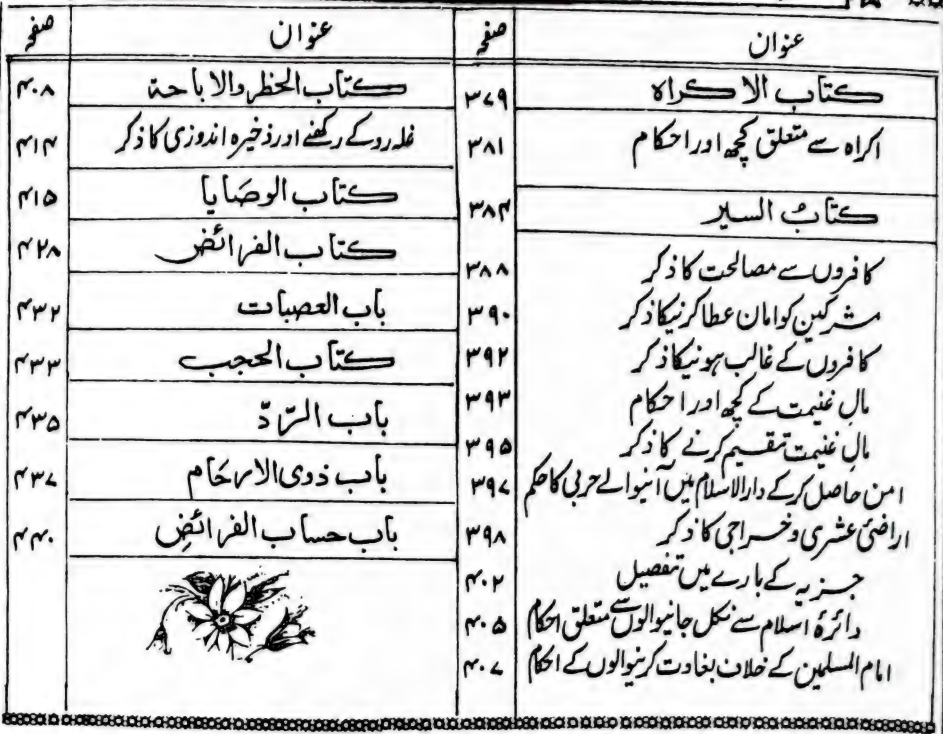 عنوان صفحہ
کتاب الاکراہ ۳۷۹
اکراہ سے متعلق کچھ اور احکام ۳۸۱
کتابُ السیر ۳۸۴
کافروں سے مصالحت کا ذکر ۳۸۸
مشرکین کو امان عطا کرنیکا ذکر ۳۹۰
کافروں کے غالب ہونیکا ذکر ۳۹۲
مالِ غنیمت کے کچھ اور احکام ۳۹۳
مالِ غنیمت تقسیم کرنے کا ذکر ۳۹۵
امن حاصل کرکے دارالاسلام میں آنیوالے حربی کا حکم ۳۹۷
اراضیٔ عشری و خراجی کا ذکر ۳۹۸
جزیہ کے بارے میں تفصیل ۴۰۲
دائرۂ اسلام سے نکل جانیوالوں سے متعلق احکام ۴۰۵
امام المسلمین کے خلاف بغاوت کرنیوالوں کے احکام ۴۰۷
عنوان صفحہ
کتاب الحظر والاباحۃ ۴۰۸
غلہ روکے رکھنے اور ذخیرہ اندوزی کا ذکر ۴۱۴
کتاب الوصَایا ۴۱۵
کتاب الفرائض ۴۲۸
باب العصبات ۴۳۲
کتاب الحجب ۴۳۳
باب الرّدّ ۴۳۵
باب ذوی الارحَام ۴۳۷
باب حساب الفرائضِ ۴۴۰